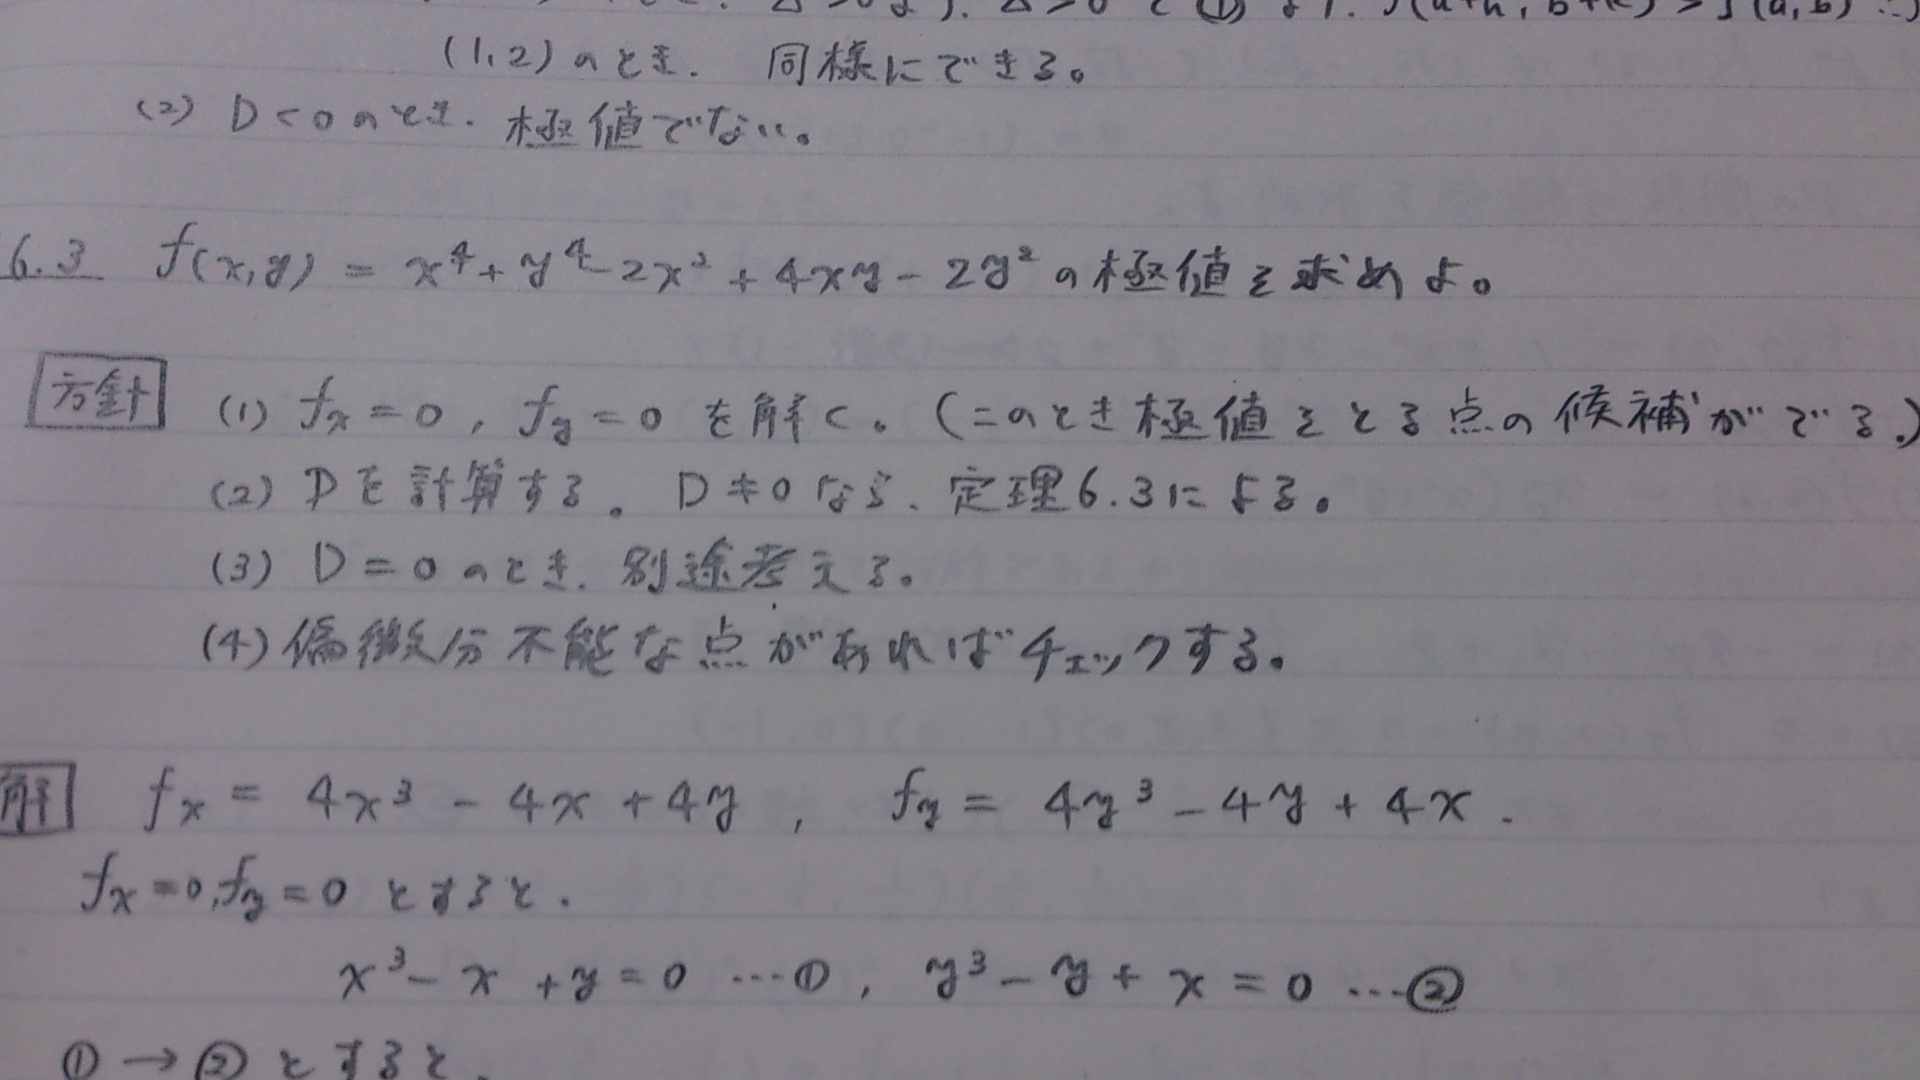 f(a+h, b+k) > f(a, b)
(1,2)のとき. 同様にできる。
(2) D<0のとき. 極値でない。
6.3 f(x,y) = x⁴+y⁴-2x²+4xy-2y²の極値を求めよ。
方針 (1) fx=0, fy=0を解く。(このとき極値をとる点の候補がでる。)
(2) Dを計算する。D≠0なら、定理6.3による。
(3) D=0のとき. 別途考える。
(4) 偏微分不能な点があればチェックする。
解 fx = 4x³-4x+4y, fy = 4y³-4y+4x.
fx=0,fy=0とすると.
x³-x+y=0 …①, y³-y+x=0 …②
①→②とすると.